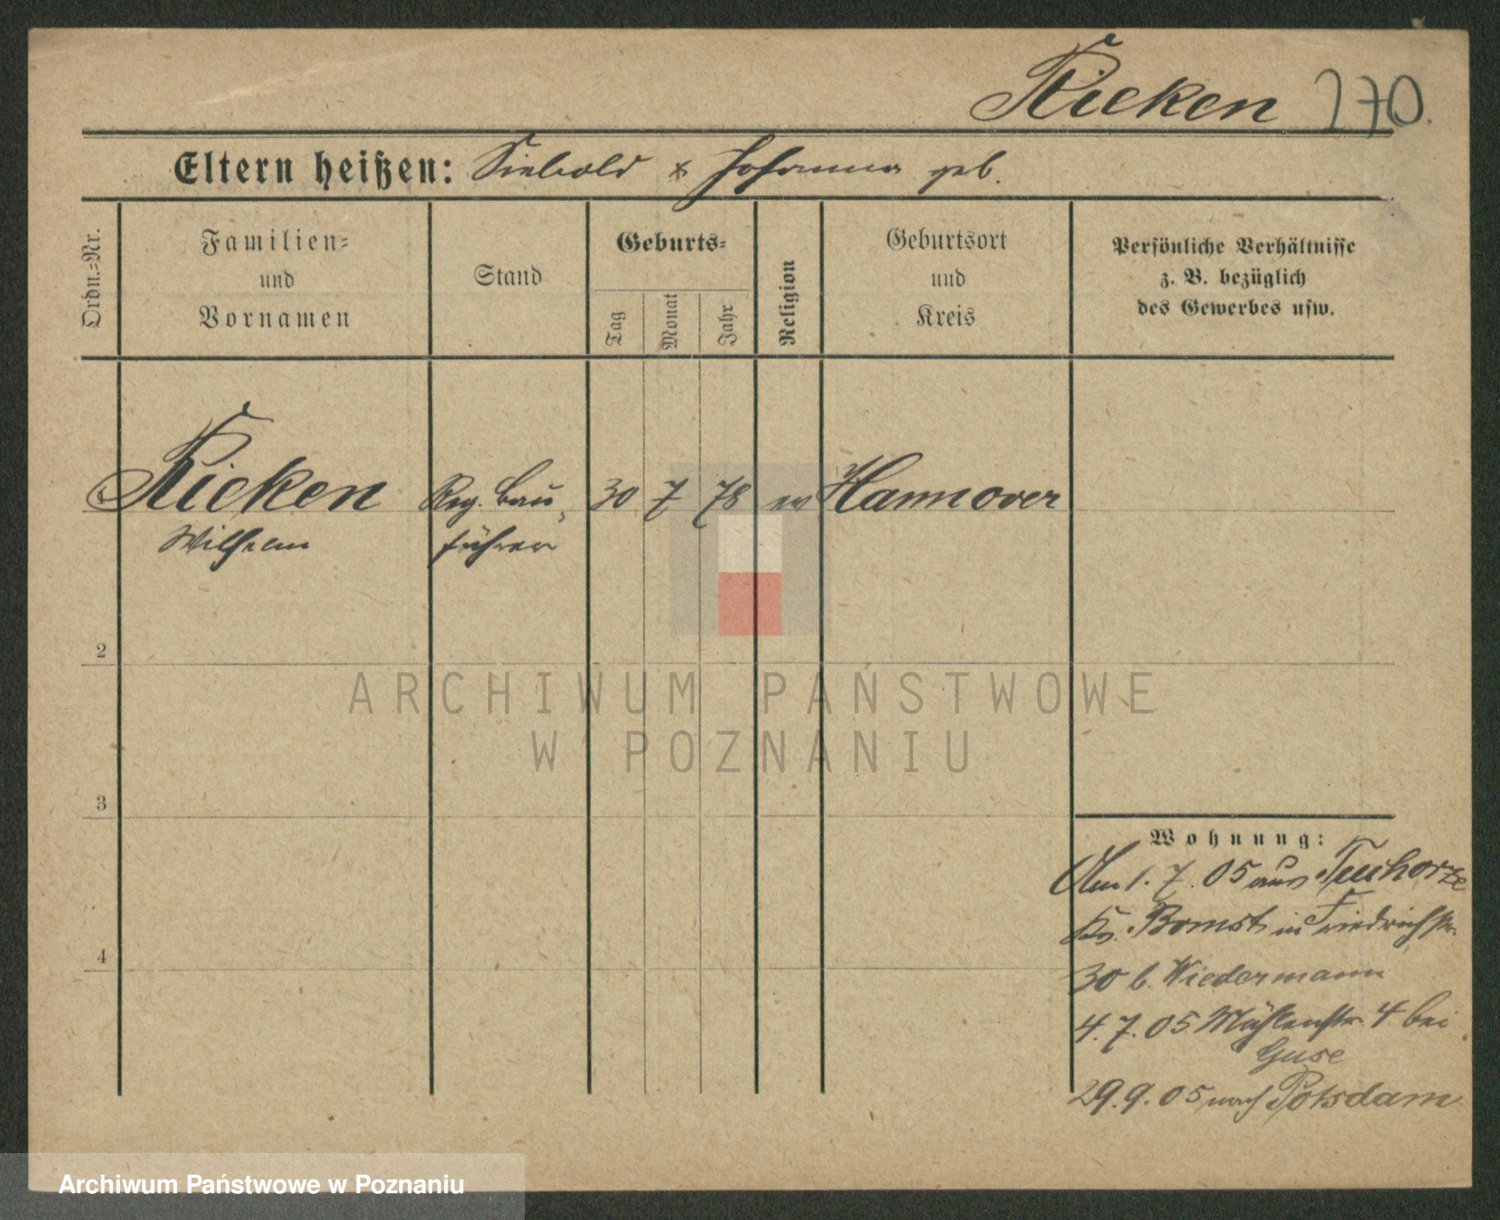 Rieken 270.
Eltern heißen: Siebold & Johanna geb.
Ordn.=Nr.
Familien=
und
Vornamen
Stand
Geburts=
Tag
Monat
Jahr
Religion
Geburtsort
und
Kreis
Persönliche Verhältnisse
z. B. bezüglich
des Gewerbes usw.
Rieken Reg. Bau 30 7 78 ev Hannover
Wilhelm führer
2
3
4
Wohnung:
Am 1. 7. 05 aus Tuchorze
Kr. Bomst in Friedrichstr.
30 b. Wiedermann
4. 7. 05 Mühlenstr. 4 bei
Guse
29. 9. 05 nach Potsdam
ARCHIWUM PAŃSTWOWE
W POZNANIU
Archiwum Państwowe w Poznaniu